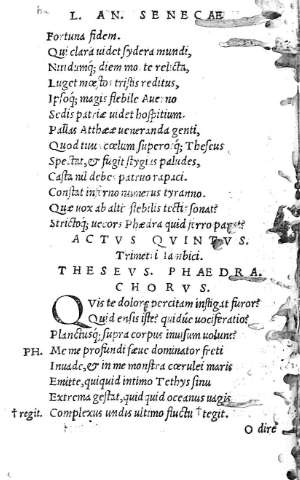 L. AN. SENECAE
Fortuna fidem.
Qui clara uidet sydera mundi,
Nitidumq; diem morte relicta,
Luget mœstos tristis reditus,
Ipsoq; magis flebile Auerno
Sedis patriæ uidet hospitium.
Pallas Attheæ ueneranda genti,
Quod tuus cœlum superosq; Theseus
Spectat, & fugit stygias paludes,
Casta nil debes patruo rapaci.
Constat inferno numerus tyranno.
Quæ uox ab altis flebilis tectis sonat?
Strictoq; uecors Phædra quid ferro parat?
ACTVS QVINTVS.
Trimetri Iambici.
THESEVS. PHAEDRA.
CHORVS.
QVis te dolore percitam instigat furor?
Quid ensis iste? quidue uociferatio?
Planctusq; supra corpus inuisum uolunt?
PH. Me me profundi sæue dominator freti
Inuade, & in me monstra cœrulei maris
Emitte, quicquid intimo Tethys sinu
Extrema gestat, quicquid oceanus uagis
†regit. Complexus undis ultimo fluctu †tegit.
O dire